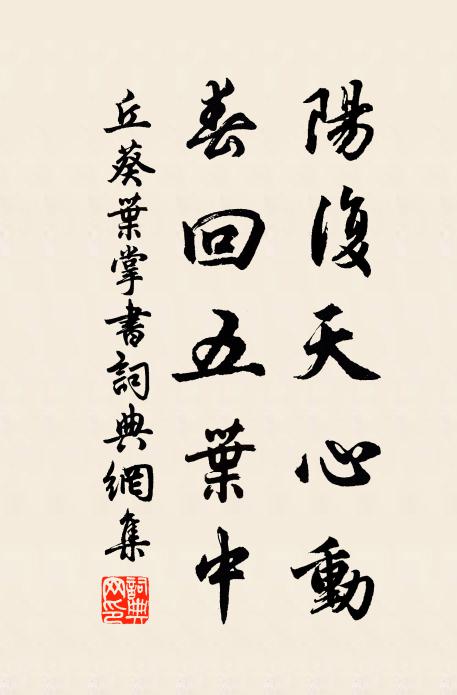 陽復天心動
春回五葉中
丘葵葉掌書詞典網集
詞典
网印